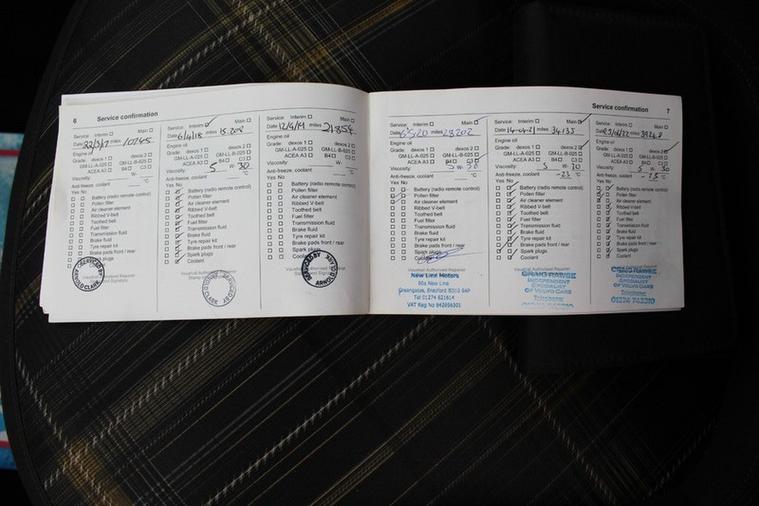 6 Service confirmation
Service: Interim Main
Date 22/3/17 miles 10745
Engine oil
Grade: dexos 1 dexos 2
GM-LL-A-025 GM-LL-B-025
ACEA A3 B4 C3
Viscosity: W
Anti-freeze, coolant °C
Yes No
Battery (radio remote control)
Pollen filter
Air cleaner element
Ribbed V-belt
Toothed belt
Fuel filter
Transmission fluid
Brake fluid
Tyre repair kit
Brake pads front / rear
Spark plugs
Coolant
SERVICED BY
ARNOLD CLARK
Service: Interim Main
Date 6/4/18 miles 15.208
Engine oil
Grade: dexos 1 dexos 2
GM-LL-A-025 GM-LL-B-025
ACEA A3 B4 C3
Viscosity: 5 W 30
Anti-freeze, coolant °C
Yes No
Battery (radio remote control)
Pollen filter
Air cleaner element
Ribbed V-belt
Toothed belt
Fuel filter
Transmission fluid
Brake fluid
Tyre repair kit
Brake pads front / rear
Spark plugs
Coolant
SERVICED BY
ARNOLD CLARK
Service: Interim Main
Date 12/4/19 miles 21854
Engine oil
Grade: dexos 1 dexos 2
GM-LL-A-025 GM-LL-B-025
ACEA A3 B4 C3
Viscosity: W
Anti-freeze, coolant °C
Yes No
Battery (radio remote control)
Pollen filter
Air cleaner element
Ribbed V-belt
Toothed belt
Fuel filter
Transmission fluid
Brake fluid
Tyre repair kit
Brake pads front / rear
Spark plugs
Coolant
SERVICED BY
ARNOLD CLARK
Service confirmation 7
Service: Interim Main
Date 6/5/20 miles 28202
Engine oil
Grade: dexos 1 dexos 2
GM-LL-A-025 GM-LL-B-025
ACEA A3 B4 C3
Viscosity: 5 W 30
Anti-freeze, coolant °C
Yes No
Battery (radio remote control)
Pollen filter
Air cleaner element
Ribbed V-belt
Toothed belt
Fuel filter
Transmission fluid
Brake fluid
Tyre repair kit
Brake pads front / rear
Spark plugs
Coolant
Vauxhall Authorised Repairer
New Line Motors
90a New Line
Greengates, Bradford BD10 9AP
Tel 01274 621614
Service: Interim Main
Date 14-04-21 miles 34135
Engine oil
Grade: dexos 1 dexos 2
GM-LL-A-025 GM-LL-B-025
ACEA A3 B4 C3
Viscosity: 5 W 30
Anti-freeze, coolant -23 °C
Yes No
Battery (radio remote control)
Pollen filter
Air cleaner element
Ribbed V-belt
Toothed belt
Fuel filter
Transmission fluid
Brake fluid
Tyre repair kit
Brake pads front / rear
Spark plugs
Coolant
INDEPENDENT
SPECIALIST
OF VOLVO CARS
Telephone:
Service: Interim Main
miles
Engine oil
Grade: dexos 1 dexos 2
GM-LL-A-025 GM-LL-B-025
ACEA A3 B4 C3
Viscosity: 5 W 30
Anti-freeze, coolant °C
Yes No
Battery (radio remote control)
Pollen filter
Air cleaner element
Ribbed V-belt
Toothed belt
Fuel filter
Transmission fluid
Brake fluid
Tyre repair kit
Brake pads front / rear
Spark plugs
Coolant
INDEPENDENT
SPECIALIST
OF VOLVO CARS
Telephone: